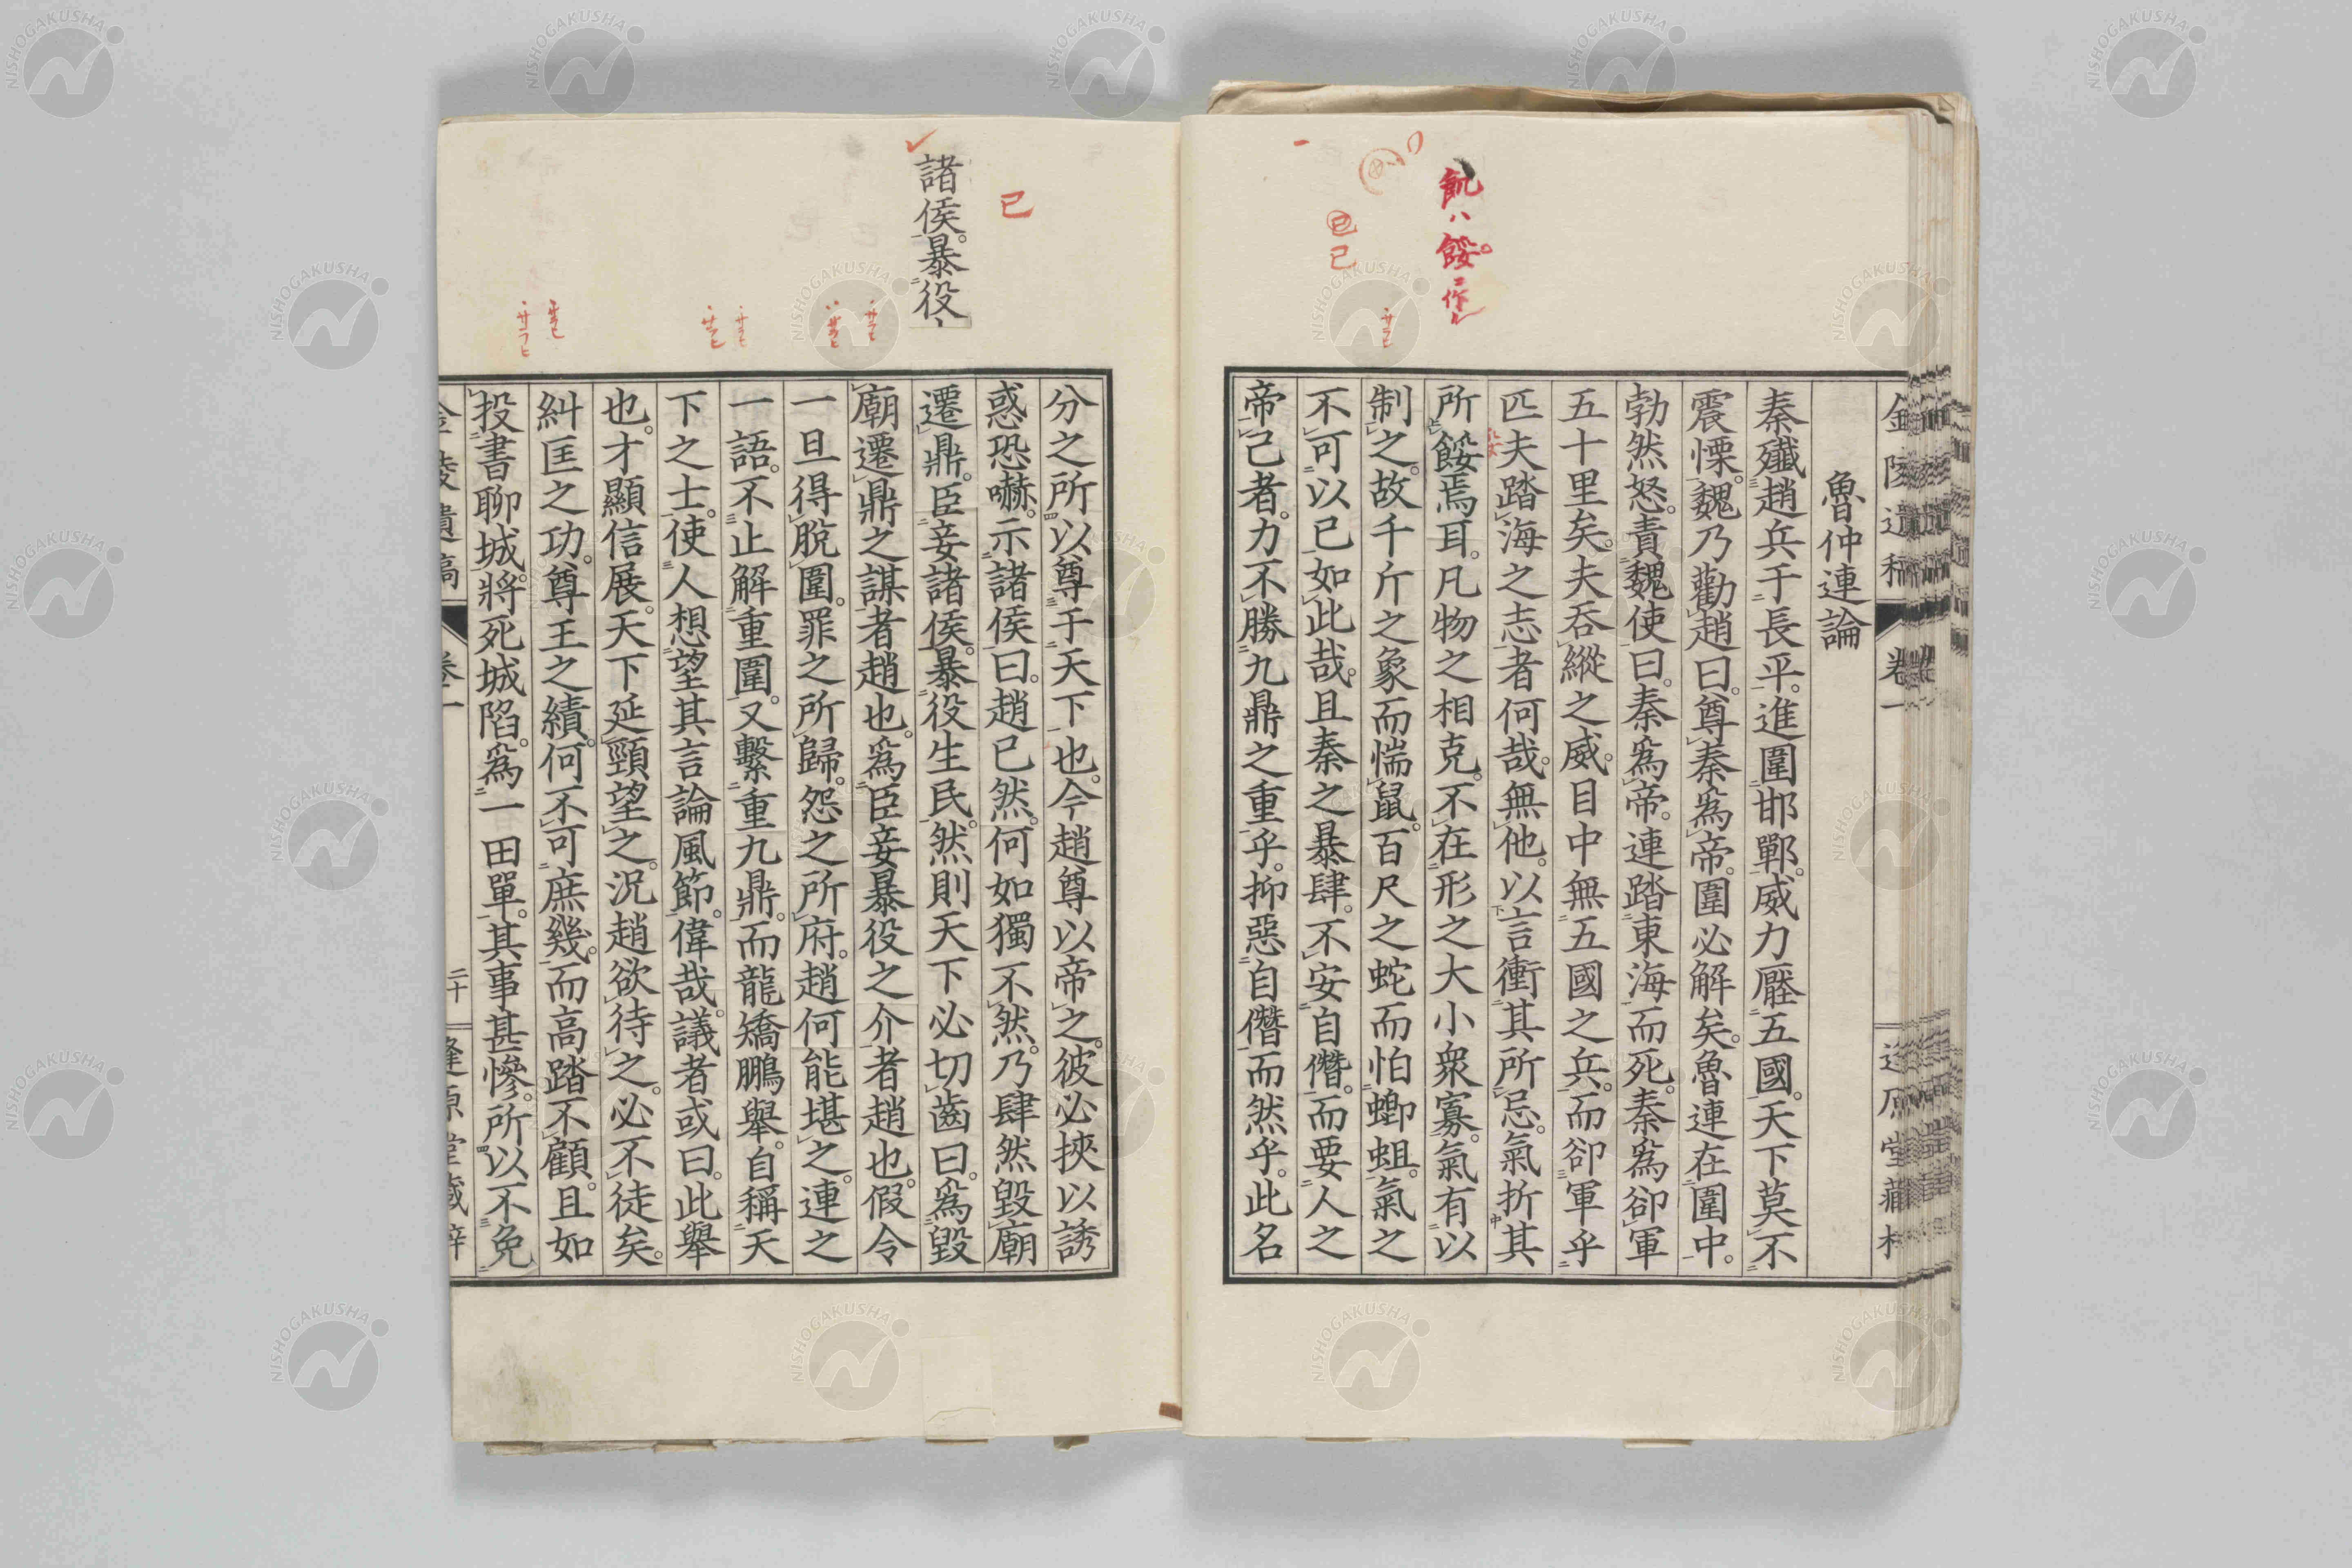 魯仲連論
秦殲趙兵于長平。進圍邯鄲。威力壓五國。天下莫不
震慄。魏乃勸趙曰。尊秦爲帝。圍必解矣。魯連在圍中。
勃然怒。責魏使曰。秦爲帝。連踏東海而死。秦爲卻軍
五十里矣。夫吞縱之威。目中無五國之兵。而卻軍乎
匹夫踏海之志者何哉。無他。以言衝其所忌。氣折其
所餒焉耳。凡物之相克。不在形之大小衆寡。氣有以
制之。故千斤之象而惴鼠。百尺之蛇而怕蝍蛆。氣之
不可以已如此哉。且秦之暴肆。不安自僭。而要人之
帝己者。力不勝九鼎之重乎。抑惡自僭而然乎。此名
分之所以尊于天下也。今趙尊以帝之。彼必挾以誘
惑恐嚇。示諸侯曰。趙已然。何如獨不然。乃肆然毀廟
遷鼎。臣妾諸侯。暴役生民。然則天下必切齒曰。爲毀
廟遷鼎之謀者趙也。爲臣妾暴役之介者趙也。假令
一旦得脫圍。罪之所歸。怨之所府。趙何能堪之。連之
一語。不止解重圍。又繫重九鼎。而龍矯鵬舉。自稱天
下之士。使人想望其言論風節。偉哉。議者或曰。此舉
也。才顯信展。天下延頸望之。況趙欲待之。必不徒矣。
糾匡之功。尊王之績。何不可庶幾。而高踏不顧。且如
投書聊城。將死城陷。爲一田單。其事甚慘。所以不免
諸侯。暴役
己
飢ハ餒。ニ作ル
己